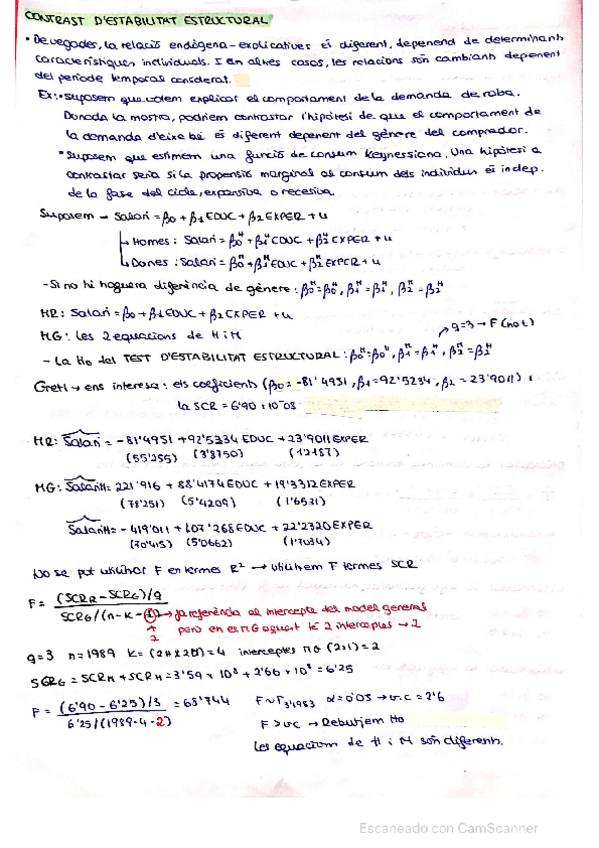 CONTRAST D'ESTABILITAT ESTRUCTURAL
• De vegades, la relació endògena-explicatives és diferent, depenend de determinants
característiques individuals. I en altres casos, les relacions són canviants depenent
del període temporal considerat.
Ex: • suposem que volem explicar el comportament de la demanda de roba.
Donada la mostra, podriem contrastar l'hipòtesi de que el comportament de
la demanda d'eixe bé és diferent depenent del gènere del comprador.
• Suposem que estimem una funció de consum Keynessiana. Una hipòtesi a
contrastar seria si la propensió marginal al consum dels individus és indep.
de la fase del cicle, expansiva o recesiva.
Suposem → Salari = β0 + β1 EDUC + β2 EXPER + u
↳ Homes: Salari = β0^H + β1^H EDUC + β2^H EXPER + u
↳ Dones: Salari = β0^M + β1^M EDUC + β2^M EXPER + u
- Si no hi haguera diferència de gènere: β0^M = β0^H, β1^M = β1^H, β2^M = β2^H
MR: Salari = β0 + β1 EDUC + β2 EXPER + u
MG: les 2 equacions de H i M
q=3 → F (no t)
- La Ho del TEST D'ESTABILITAT ESTRUCTURAL: β0^M = β0^H, β1^M = β1^H, β2^M = β2^H
Gretl → ens interesa: els coeficients (β0 = -81'4951, β1 = 92'5234, β2 = 23'9011) i
la SCR = 6'90 × 10^08
MR: Salari = -81'4951 + 92'5334 EDUC + 23'9011 EXPER
(55'255) (3'8750) (1'2187)
MG: SalariH = 221'916 + 88'4174 EDUC + 19'3312 EXPER
(78'251) (5'4209) (1'6531)
SalariM = -419'011 + 107'268 EDUC + 22'2320 EXPER
(70'415) (5'0662) (1'7034)
No se pot utilitzar F en termes R² → utilitzem F termes SCR
F = (SCRR - SCRG)/q
SCRG/(n-k-1) → fa referència al intercepte del model general
però en es MG aquest té 2 interceptes → 2
2
q=3 n=1989 k= (2H x 2D) = 4 interceptes MG (2x1) = 2
SCRG = SCRM + SCRH = 3'59 × 10^8 + 2'66 × 10^8 = 6'25
F = (6'90 - 6'25)/3 = 68'744 F ~ F3,1983 α = 0'05 → v.c = 2'6
6'25/(1989-4-2) F > vc → Rebutjem Ho
Les equacions de H i M són diferents.
Escaneado con CamScanner